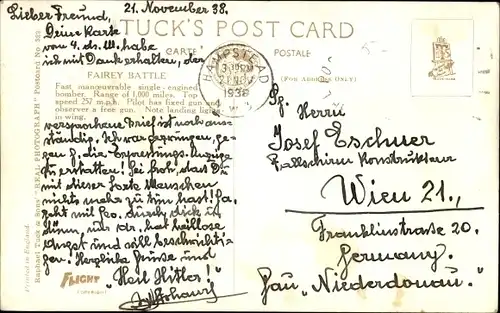 21. November 38.
Lieber Freund,
TUCK'S POST CARD
Deine Karte
CARTE POSTALE
vom 4. ds. M. habe
(FOR ADDRESS ONLY)
ich mit Dank erhalten, der
FAIREY BATTLE
Fast manœuvrable single-engined
bomber. Range of 1,000 miles. Top
speed 257 m.p.h. Pilot has fixed gun and
observer a free gun. Note landing lights
in wing.
versprochene Brief ist noch aus-
ständig. Ich war gezwungen, ge-
gen
zu erstatten! Sei froh, dass Du
mit dieser Sorte Menschen
nichts mehr zu tun hast! Ja,
geht mit Geo. durch dick &
dünn, nur hat heillose
Angst und will beschwichti-
gen! Herzliche Grüsse und
"Heil Hitler!"
FLIGHT
COPYRIGHT
Printed in England.
Raphael Tuck & Sons' "REAL PHOTOGRAPH" Postcard No.
HAMPSTEAD
21 NOV
1938
Pg. Herrn
Josef Eschner
Fallschirm Konstrukteur
Wien 21.,
Franklinstrasse 20.
Germany.
Gau "Niederdonau."